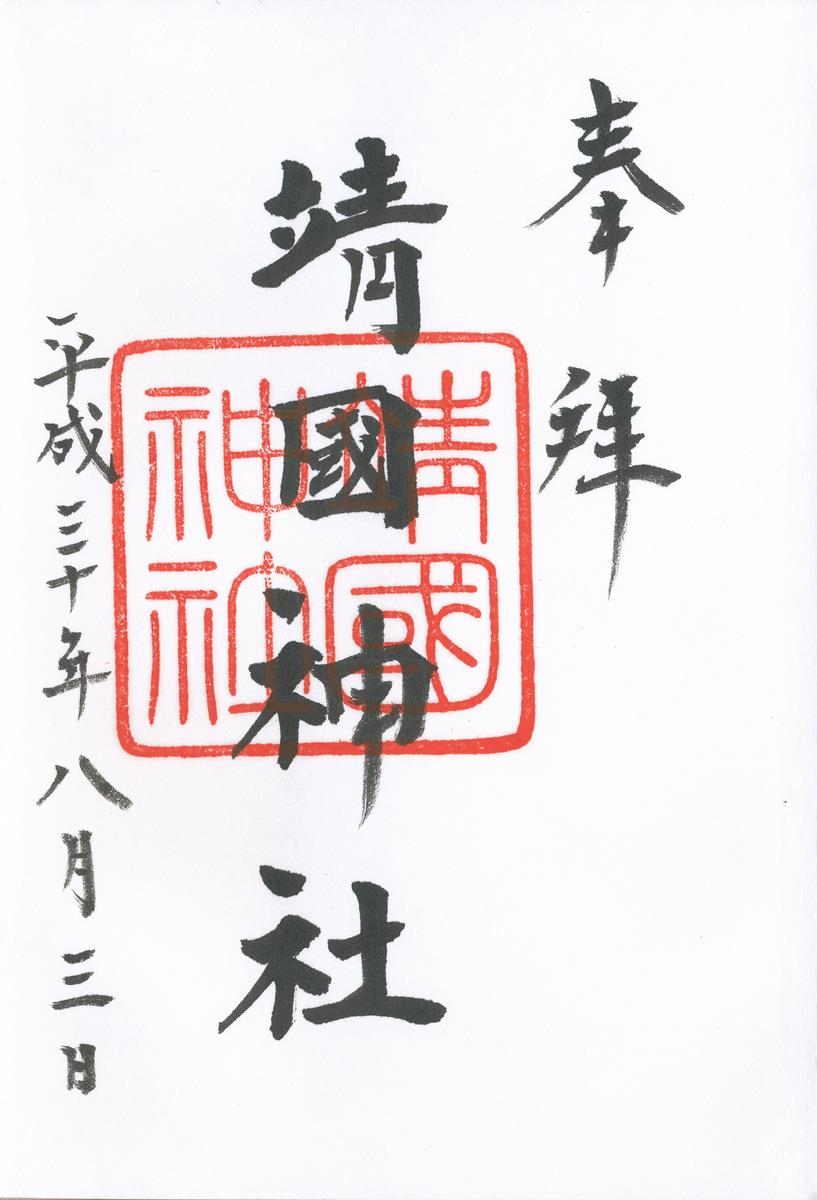 奉拝
靖國神社
靖國
神社
平成三十年八月三日